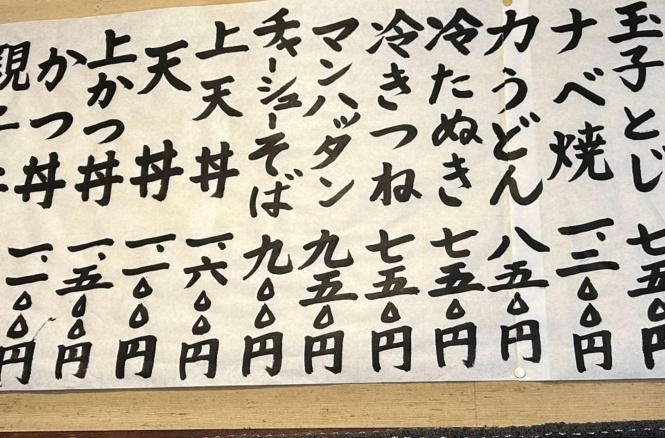 玉子とじ 七五〇
ナベ焼 一、二〇〇円
力うどん 八五〇円
冷たぬき 七五〇円
冷きつね 七五〇円
マンハッタン 九五〇円
チャーシューそば 九〇〇円
上天丼 一、六〇〇円
天丼 一、一〇〇円
上かつ丼 一、五〇〇円
かつ丼 一、一〇〇円
親子